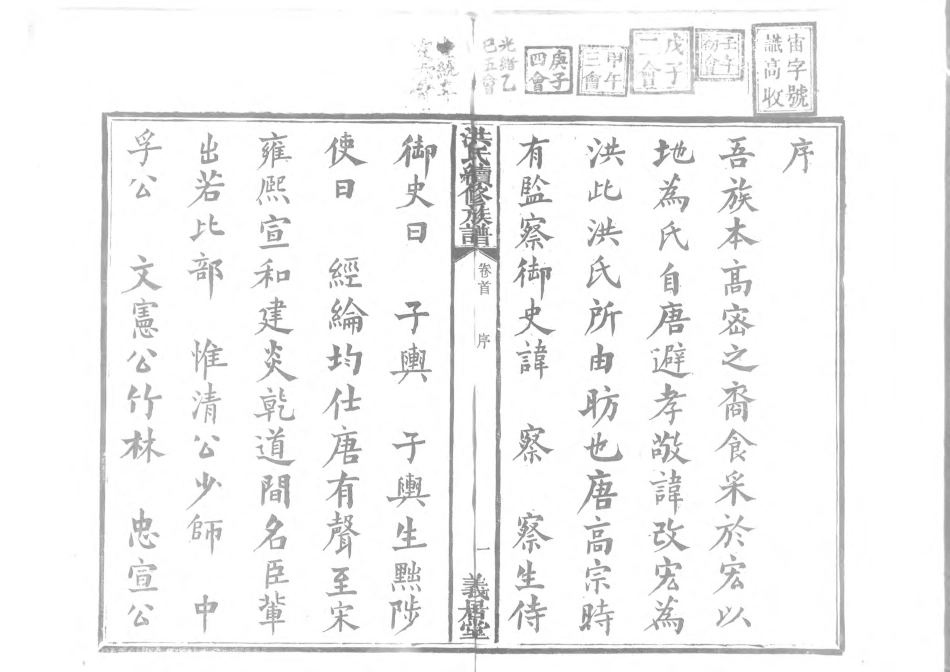 宙字號
識高收
壬午
初會
戊子
二會
甲午
三會
庚子
四會
光緒乙
巳五會
序
吾族本高密之裔食采於宏以
地為氏自唐避孝敬諱改宏為
洪此洪氏所由昉也唐高宗時
有監察御史諱 察 察生侍
洪氏續修族譜 卷首 序 一 義居堂
御史曰 子輿 子輿生黜陟
使曰 經綸均仕唐有聲至宋
雍熙宣和建炎乾道間名臣輩
出若比部 惟清公少師 中
孚公 文憲公竹林 忠宣公